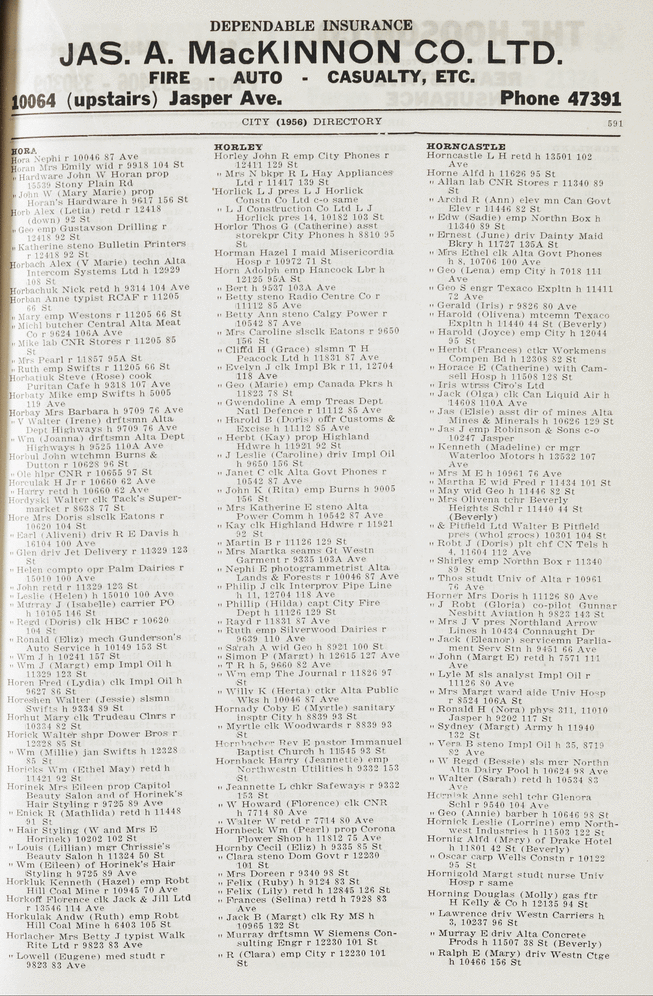 DEPENDABLE INSURANCE
JAS. A. MacKINNON CO. LTD.
FIRE - AUTO - CASUALTY, ETC.
10064 (upstairs) Jasper Ave. Phone 47391
CITY (1956) DIRECTORY 591
HORA
Hora Nephi r 10046 87 Ave
Horan Mrs Emily wid r 9918 104 St
" Hardware John W Horan prop
15539 Stony Plain Rd
" John W (Mary Marie) prop
Horan's Hardware h 9617 156 St
Horb Alex (Letia) retd r 12418
(down) 92 St
" Geo emp Gustavson Drilling r
12418 92 St
" Katherine steno Bulletin Printers
r 12418 92 St
Horbach Alex (V Marie) techn Alta
Intercom Systems Ltd h 12939
108 St
Horbachuk Nick retd h 9314 104 Ave
Horban Anne typist RCAF r 11205
66 St
" Mary emp Westons r 11205 66 St
" Michl butcher Central Alta Meat
Co r 9624 106A Ave
" Mike lab CNR Stores r 11205 85
St
" Mrs Pearl r 11857 95A St
" Ruth emp Swifts r 11205 66 St
Horbatiuk Steve (Rose) cook
Puritan Cafe h 9318 107 Ave
Horbaty Mike emp Swifts h 5005
119 Ave
Horbay Mrs Barbara h 9709 76 Ave
" V Walter (Irene) drftsmn Alta
Dept Highways h 9709 76 Ave
" Wm (Joanna) drftsmn Alta Dept
Highways h 9525 110A Ave
Horbul John wtchmn Burns &
Dutton r 10628 96 St
" Ole hlpr CNR r 10655 97 St
Horculak H Jr r 10660 62 Ave
" Harry retd h 10660 62 Ave
Hordyski Walter clk Tack's Super-
market r 8638 77 St
Hore Mrs Doris slsclk Eatons r
10620 104 St
" Earl (Aliveni) driv R E Davis h
16104 100 Ave
" Glen driv Jet Delivery r 11329 123
St
" Helen compto opr Palm Dairies r
15010 100 Ave
" John retd r 11329 123 St
" Leslie (Helen) h 15010 100 Ave
" Murray J (Isabelle) carrier PO
h 10105 146 St
" Regd (Doris) clk HBC r 10620
104 St
" Ronald (Eliz) mech Gunderson's
Auto Service h 10149 153 St
" Wm J h 10241 157 St
" Wm J (Margt) emp Impl Oil h
11329 123 St
Horen Fred (Lydia) clk Impl Oil h
9627 86 St
Horeshen Walter (Jessie) slsmn
Swifts h 9334 89 St
Horhut Mary clk Trudeau Clnrs r
10334 82 St
Horick Walter shpr Dower Bros r
12328 85 St
" Wm (Millie) jan Swifts h 12328
85 St
Horicks Wm (Ethel May) retd h
11421 92 St
Horinek Mrs Eileen prop Capitol
Beauty Salon and of Horinek's
Hair Styling r 9725 89 Ave
" Enick R (Mathlida) retd h 11448
91 St
" Hair Styling (W and Mrs E
Horinek) 10202 102 St
" Louis (Lillian) mgr Chrissie's
Beauty Salon h 11324 50 St
" Wm (Eileen) of Horinek's Hair
Styling h 9725 89 Ave
Horkluk Kenneth (Hazel) emp Robt
Hill Coal Mine r 10945 70 Ave
Horkoff Florence clk Jack & Jill Ltd
r 13546 114 Ave
Horkulak Andw (Ruth) emp Robt
Hill Coal Mine h 6403 105 St
Horlacher Mrs Betty J typist Walk
Rite Ltd r 9823 83 Ave
" Lowell (Eugene) med studt r
9823 83 Ave
HORLEY
Horley John R emp City Phones r
12411 129 St
" Mrs N bkpr R L Hay Appliances
Ltd r 11417 139 St
Horlick L J pres L J Horlick
Constn Co Ltd c-o same
" L J Construction Co Ltd L J
Horlick pres 14, 10182 103 St
Horlor Thos G (Catherine) asst
storekpr City Phones h 8810 95
St
Horman Hazel I maid Misericordia
Hosp r 10972 71 St
Horn Adolph emp Hancock Lbr h
12125 95A St
" Bert h 9537 103A Ave
" Betty steno Radio Centre Co r
11112 85 Ave
" Betty Ann steno Calgy Power r
10542 87 Ave
" Mrs Caroline slsclk Eatons r 9650
156 St
" Cliffd H (Grace) slsmn T H
Peacock Ltd h 11831 87 Ave
" Evelyn J clk Impl Bk r 11, 12704
118 Ave
" Geo (Marie) emp Canada Pkrs h
11822 78 St
" Gwendoline A emp Treas Dept
Natl Defence r 11112 85 Ave
" Harold B (Doris) offr Customs &
Excise h 11112 85 Ave
" Herbt (Kay) prop Highland
Hdwre h 11921 92 St
" J Leslie (Caroline) driv Impl Oil
h 9650 156 St
" Janet C clk Alta Govt Phones r
10542 87 Ave
" John K (Rita) emp Burns h 9005
156 St
" Mrs Katherine E steno Alta
Power Comm h 10542 87 Ave
" Kay clk Highland Hdwre r 11921
92 St
" Martin B r 11126 129 St
" Mrs Martka seams Gt Westn
Garment r 9335 103A Ave
" Nephi E photogrammetrist Alta
Lands & Forests r 10046 87 Ave
" Philip J clk Interprov Pipe Line
h 11, 12704 118 Ave
" Phillip (Hilda) capt City Fire
Dept h 11126 129 St
" Rayd r 11831 87 Ave
" Ruth emp Silverwood Dairies r
9639 110 Ave
" Sarah A wid Geo h 8921 100 St
" Simon P (Margt) h 12615 127 Ave
" T R h 5, 9660 82 Ave
" Wm emp The Journal r 11826 97
St
" Willy K (Herta) ctkr Alta Public
Wks h 10046 87 Ave
Hornady Coby E (Myrtle) sanitary
insptr City h 8839 93 St
" Myrtle clk Woodwards r 8839 93
St
Hornbacher Rev E pastor Immanuel
Baptist Church h 11545 93 St
Hornback Harry (Jeannette) emp
Northwestn Utilities h 9332 153
St
" Jeannette L chkr Safeways r 9332
153 St
" W Howard (Florence) clk CNR
h 7714 80 Ave
" Walter W retd r 7714 80 Ave
Hornbeck Wm (Pearl) prop Corona
Flower Shop h 11812 75 Ave
Hornby Cecil (Eliz) h 9335 85 St
" Clara steno Dom Govt r 12230
101 St
" Mrs Doreen r 9340 98 St
" Felix (Ruby) h 9124 83 St
" Felix (Lily) retd h 12845 126 St
" Frances (Selina) retd h 7928 83
Ave
" Jack B (Margt) clk Ry MS h
10965 132 St
" Murray drftsmn W Siemens Con-
sulting Engr r 12230 101 St
" R (Clara) emp City r 12230 101
St
HORNCASTLE
Horncastle L H retd h 13501 102
Ave
Horne Alfd h 11626 95 St
" Allan lab CNR Stores r 11340 89
St
" Archd R (Ann) elev mn Can Govt
Elev r 11446 82 St
" Edw (Sadie) emp Northn Box h
11340 89 St
" Ernest (June) driv Dainty Maid
Bkry h 11727 135A St
" Mrs Ethel clk Alta Govt Phones
h 8, 10706 100 Ave
" Geo (Lena) emp City h 7018 111
Ave
" Geo S engr Texaco Expltn h 11411
72 Ave
" Gerald (Iris) r 9826 80 Ave
" Harold (Olivena) mtcemn Texaco
Expltn h 11440 44 St (Beverly)
" Harold (Joyce) emp City h 12044
95 St
" Herbt (Frances) ctkr Workmens
Compen Bd h 12308 82 St
" Horace E (Catherine) with Cam-
sell Hosp h 11508 128 St
" Iris wtrss Ciro's Ltd
" Jack (Olga) clk Can Liquid Air h
14608 110A Ave
" Jas (Elsie) asst dir of mines Alta
Mines & Minerals h 10626 129 St
" Jas J emp Robinson & Sons c-o
10247 Jasper
" Kenneth (Madeline) cr mgr
Waterloo Motors h 13532 107
Ave
" Mrs M E h 10961 76 Ave
" Martha E wid Fred r 11434 101 St
" May wid Geo h 11446 82 St
" Mrs Olivena tchr Beverly
Heights Schl r 11440 44 St
(Beverly)
" & Pitfield Ltd Walter B Pitfield
pres (whol grocs) 10301 104 St
" Robt J (Doris) plt chf CN Tels h
4, 11604 112 Ave
" Shirley emp Northn Box r 11340
89 St
" Thos studt Univ of Alta r 10961
76 Ave
Horner Mrs Doris h 11126 80 Ave
" J Robt (Gloria) co-pilot Gunnar
Nesbitt Aviation h 9823 143 St
" Mrs J V pres Northland Arrow
Lines h 10434 Connaught Dr
" Jack (Eleanor) servicemn Parlia-
ment Serv Stn h 9451 66 Ave
" John (Margt E) retd h 7571 111
Ave
" Lyle M sls analyst Impl Oil r
11126 80 Ave
" Mrs Margt ward aide Univ Hosp
r 8524 106A St
" Ronald H (Nora) phys 311, 11010
Jasper h 9202 117 St
" Sydney (Margt) Army h 11940
132 St
" Vera B steno Impl Oil h 35, 8719
82 Ave
" W Regd (Bessie) sls mgr Northn
Alta Dairy Pool h 10624 98 Ave
" Walter (Sarah) retd h 10534 83
Ave
Horniak Anne schl tchr Glenora
Schl r 9540 104 Ave
" Geo (Annie) barber h 10646 98 St
Hornick Leslie (Lorrine) emp North-
west Industries h 11503 122 St
Hornig Alfd (Mary) of Drake Hotel
h 11801 42 St (Beverly)
" Oscar carp Wells Constn r 10122
95 St
Hornigold Margt studt nurse Univ
Hosp r same
Horning Douglas (Molly) gas ftr
H Kelly & Co h 12135 94 St
" Lawrence driv Westn Carriers h
3, 10237 96 St
" Murray E driv Alta Concrete
Prods h 11507 38 St (Beverly)
" Ralph E (Mary) driv Westn Ctge
h 10466 156 St